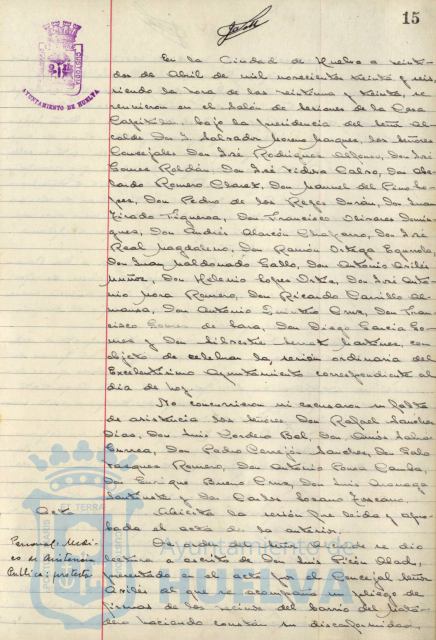 15
AYUNTAMIENTO DE HUELVA
En la Ciudad de Huelva a veinti-
dos de Abril de mil novecientos treinta y seis
siendo la hora de las veintiuna y treinta, se
reunieron en el salón de sesiones de la Casa
Capitular, bajo la presidencia del Señor Al-
calde Don Salvador Moreno Marquez, los Señores
Concejales Don José Rodriguez Alfonso, Don José
Gomez Roldán, Don José Tidera Calvo, Don Abe-
lardo Romero Charez, Don Manuel del Pino Lo-
pez, Don Pedro de los Reyes Durán, Don Juan
Tirado Figueroa, Don Francisco Olivares Domin-
guez, Don Andrés Alarcón Chaparro, Don José
Real Magdaleno, Don Ramón Ortega
Don Juan Maldonado Gallo, Don Antonio Avilés
Muñoz, Don Lopez Ortiz, Don José Anto-
nio Mora Romero, Don Ricardo Carrillo Al-
mansa, Don Antonio Cruz, Don Fran-
cisco Gomez de Lara, Don Diego Garcia Go-
mez y Don Silvestre Martinez, con
objeto de celebrar la sesión ordinaria del
Excelentísimo Ayuntamiento correspondiente al
día de hoy.
No concurrieron ni excusaron su falta
de asistencia los Señores Don Rafael Sanchez
Díaz, Don Luis Cordero Bel, Don Amós
Correa, Don Pedro Cerrejón Sanchez, Don
Vazquez Romero, Don Antonio Ponce
Don Enrique Bueno Cruz, Don Luis
y Don Carlos Lozano
Acta
Abierta la sesión fué leida y apro-
bada el acta de la anterior.
Personal: Medi-
co de Asistencia
Publica: protesta
De orden del Señor Alcalde se dio
lectura a escrito de Don Luis Picón
presentado en el acto por el Concejal Señor
Aviles al que se acompaña un pliego de
firmas de los vecinos del barrio del Mata-
dero haciendo constar su disconformidad
Ayuntamiento de
HUELVA
TERRA